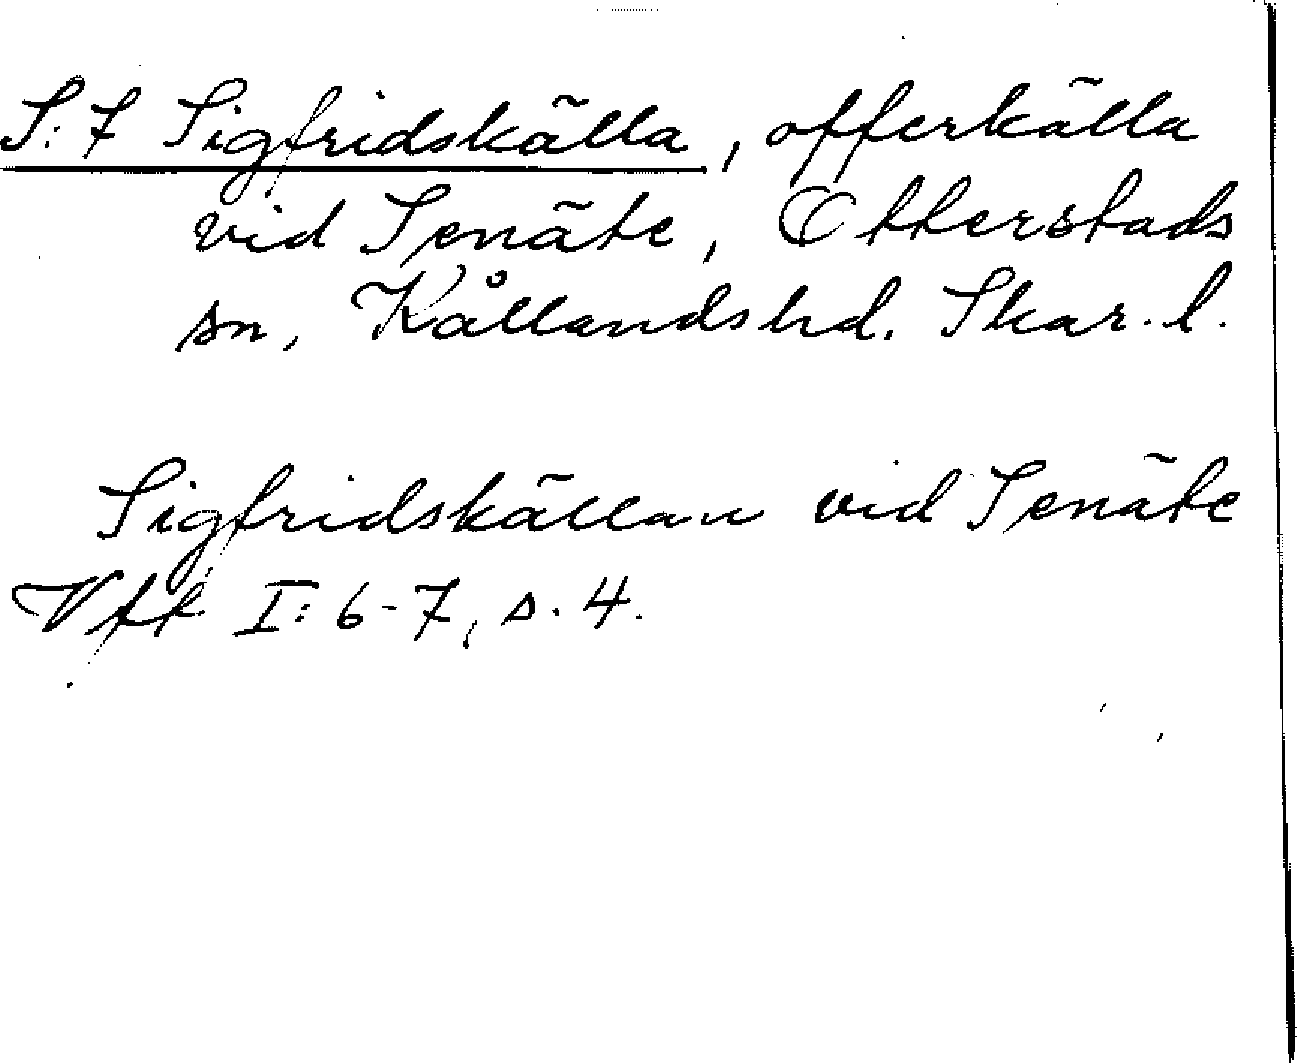 S:t Sigfridskälla, offerkälla
vid Senäte, Otterstads
sn, Kållandshd. Skar. l.
Sigfridskällan vid Senäte
Vff I: 6-7, s. 4.